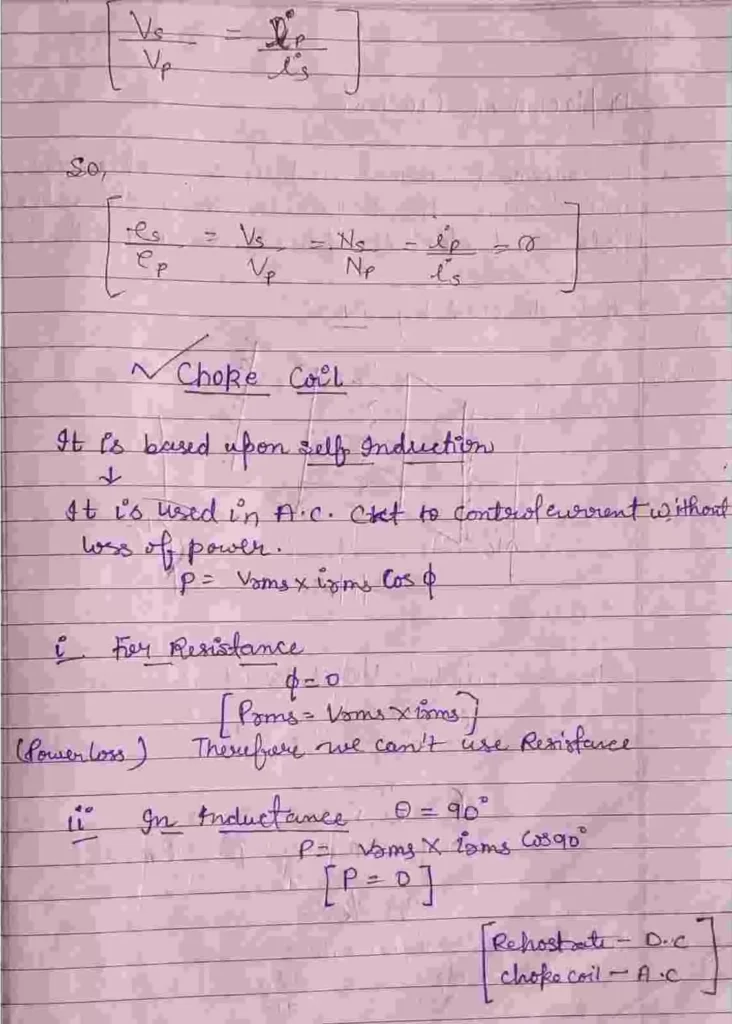 [Vs/Vp = Ip/is]
So,
[es/ep = Vs/Vp = Ns/Np = ip/is = r]
Choke Coil
It is based upon self Induction
↓
It is used in A.C. Ckt to control current without
loss of power.
P = Vrms x irms Cos ϕ
i For Resistance
ϕ = 0
[Prms = Vrms x irms]
(Power loss) Therefore we can't use Resistance
ii In Inductance θ = 90°
P = Vrms x irms Cos90°
[P = 0]
[Rehostrate - D.C
choke coil - A.C]